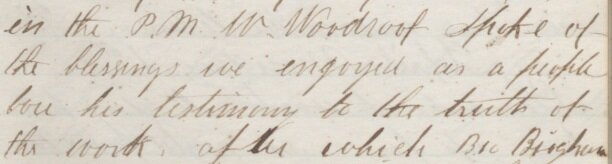 in the P.M. W. Woodroof Spoke of
the blessings we engoyed as a people
bore his testimony to the truth of
the work. after which Bro Brigham